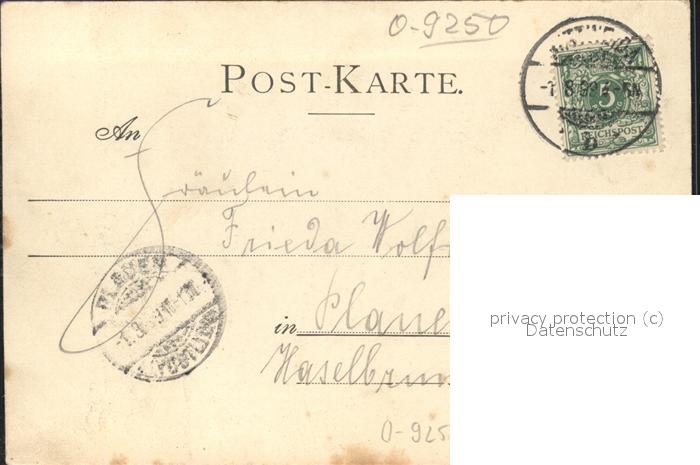 O-9250
POST-KARTE.
-1.8.99
5
REICHSPOST
An
Fräulein
Frieda Wolf
in Plaue
Haselbrun
PLAUEN
privacy protection (c)
Datenschutz
O-925